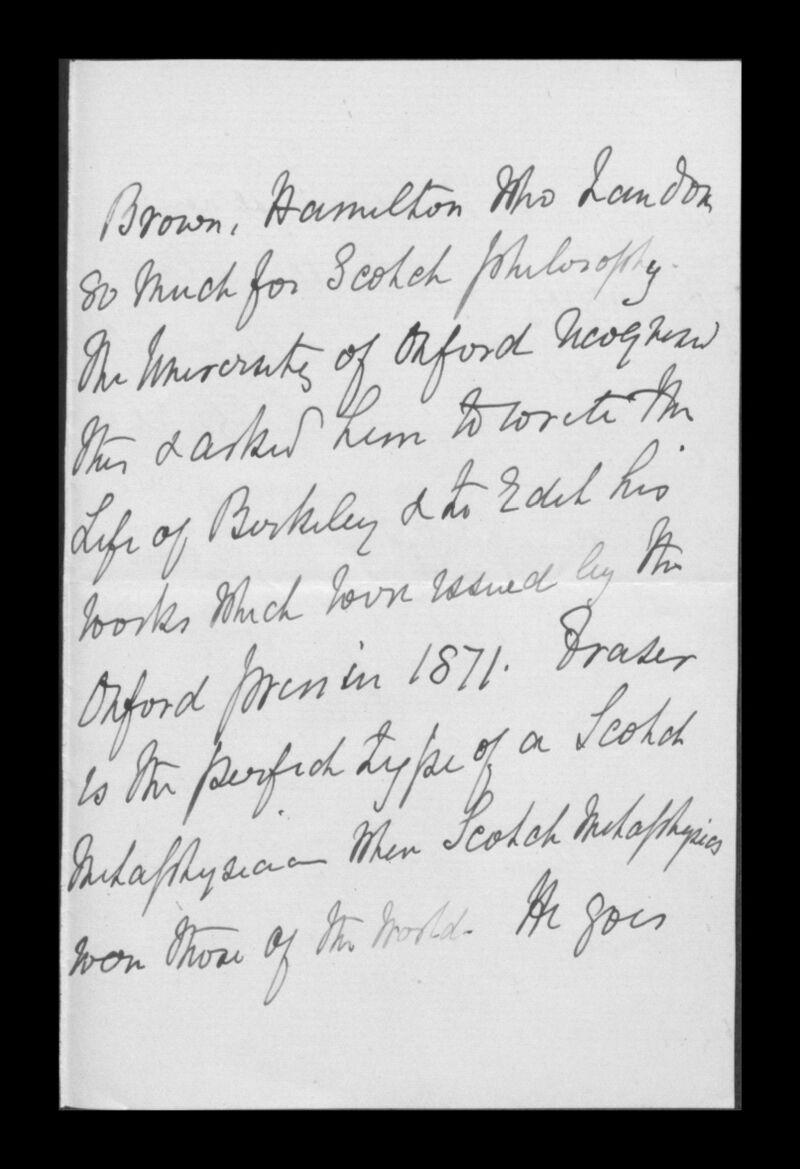 Brown, Hamilton who have done
so much for Scotch philosophy.
The University of Oxford recognised
this & asked him to write the
Life of Berkeley & to Edit his
works which were issued by the
Oxford press in 1871. Fraser
is the perfect type of a Scotch
Metaphysician when Scotch Metaphysics
were those of the World. He goes